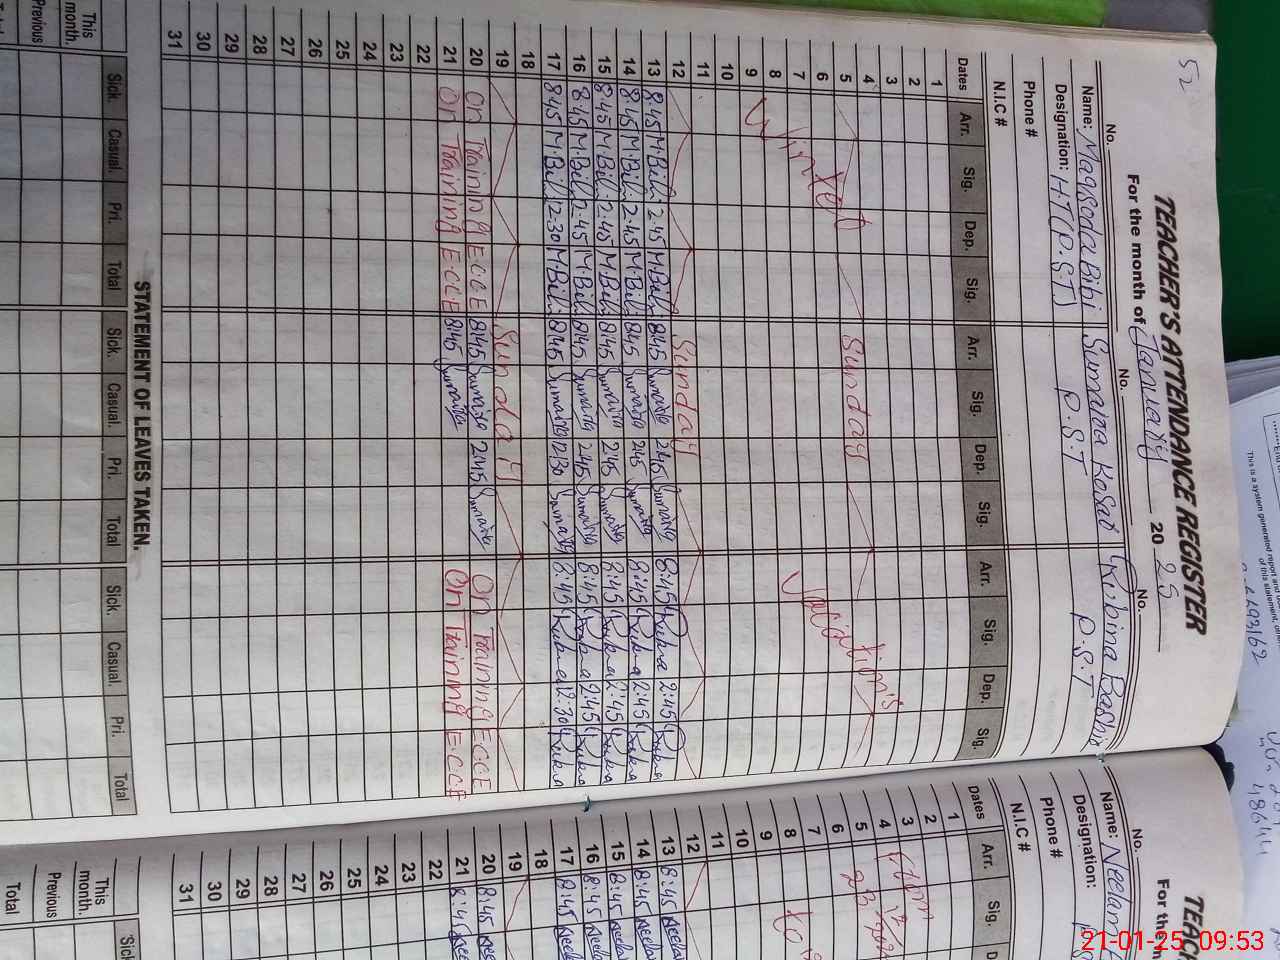 52
TEACHER'S ATTENDANCE REGISTER
For the month of January 2025
No. No. No.
Name: Maqsooda Bibi Sumaira Kosar Rubina Bashir
Designation: H.T (P.S.T) P.S.T P.S.T
Phone #
N.I.C #
Dates Arr. Sig. Dep. Sig. Arr. Sig. Dep. Sig. Arr. Sig. Dep. Sig.
1
2
3
4
5 Sunday
6
7
8
9
Winter Vacation's
10
11
12 Sunday
13 8:45 M.Bibi 2:45 M.Bibi 8:45 Sumaira 2:45 Sumaira 8:45 Rubina 2:45 Rubina
14 8:45 M.Bibi 2:45 M.Bibi 8:45 Sumaira 2:45 Sumaira 8:45 Rubina 2:45 Rubina
15 8:45 M.Bibi 2:45 M.Bibi 8:45 Sumaira 2:45 Sumaira 8:45 Rubina 2:45 Rubina
16 8:45 M.Bibi 2:45 M.Bibi 8:45 Sumaira 2:45 Sumaira 8:45 Rubina 2:45 Rubina
17 8:45 M.Bibi 12:30 M.Bibi 8:45 Sumaira 12:30 Sumaira 8:45 Rubina 12:30 Rubina
18
19 Sunday
20 On Training ECCE 8:45 Sumaira 2:45 Sumaira On Training ECCE
21 On Training ECCE 8:45 Sumaira On Training ECCE
22
23
24
25
26
27
28
29
30
31
STATEMENT OF LEAVES TAKEN.
Sick. Casual. Pri. Total Sick. Casual. Pri. Total Sick. Casual. Pri. Total
This month.
Previous
Total
TEAC
For the m
No.
Name: Neelam
Designation:
Phone #
N.I.C #
Dates Arr. Sig. D
1
2
3
4
5
6
7
8
9
10
11
12
13 8:45 Neela
14 8:45 Neela
15 8:45 Neela
16 8:45 Neela
17 8:45 Neela
18
19
20 8:45 Nee
21 8:45 Nee
22
23
24
25
26
27
28
29
30
31
Sick
This month.
Previous
Total
This is a system generated report and
of this statement,
48644
21-01-25 09:53